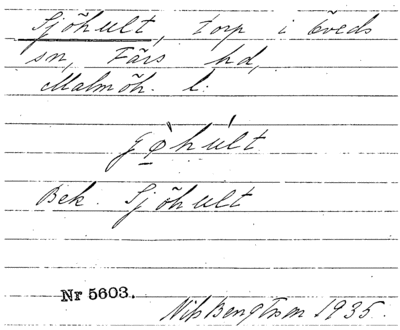 Sjöhult, torp i Öveds
sn, Färs hd,
Malmöh. l:
jø̀húlt
Bek. Sjöhult
Nr 5603.
Nils Bengtson 1935.